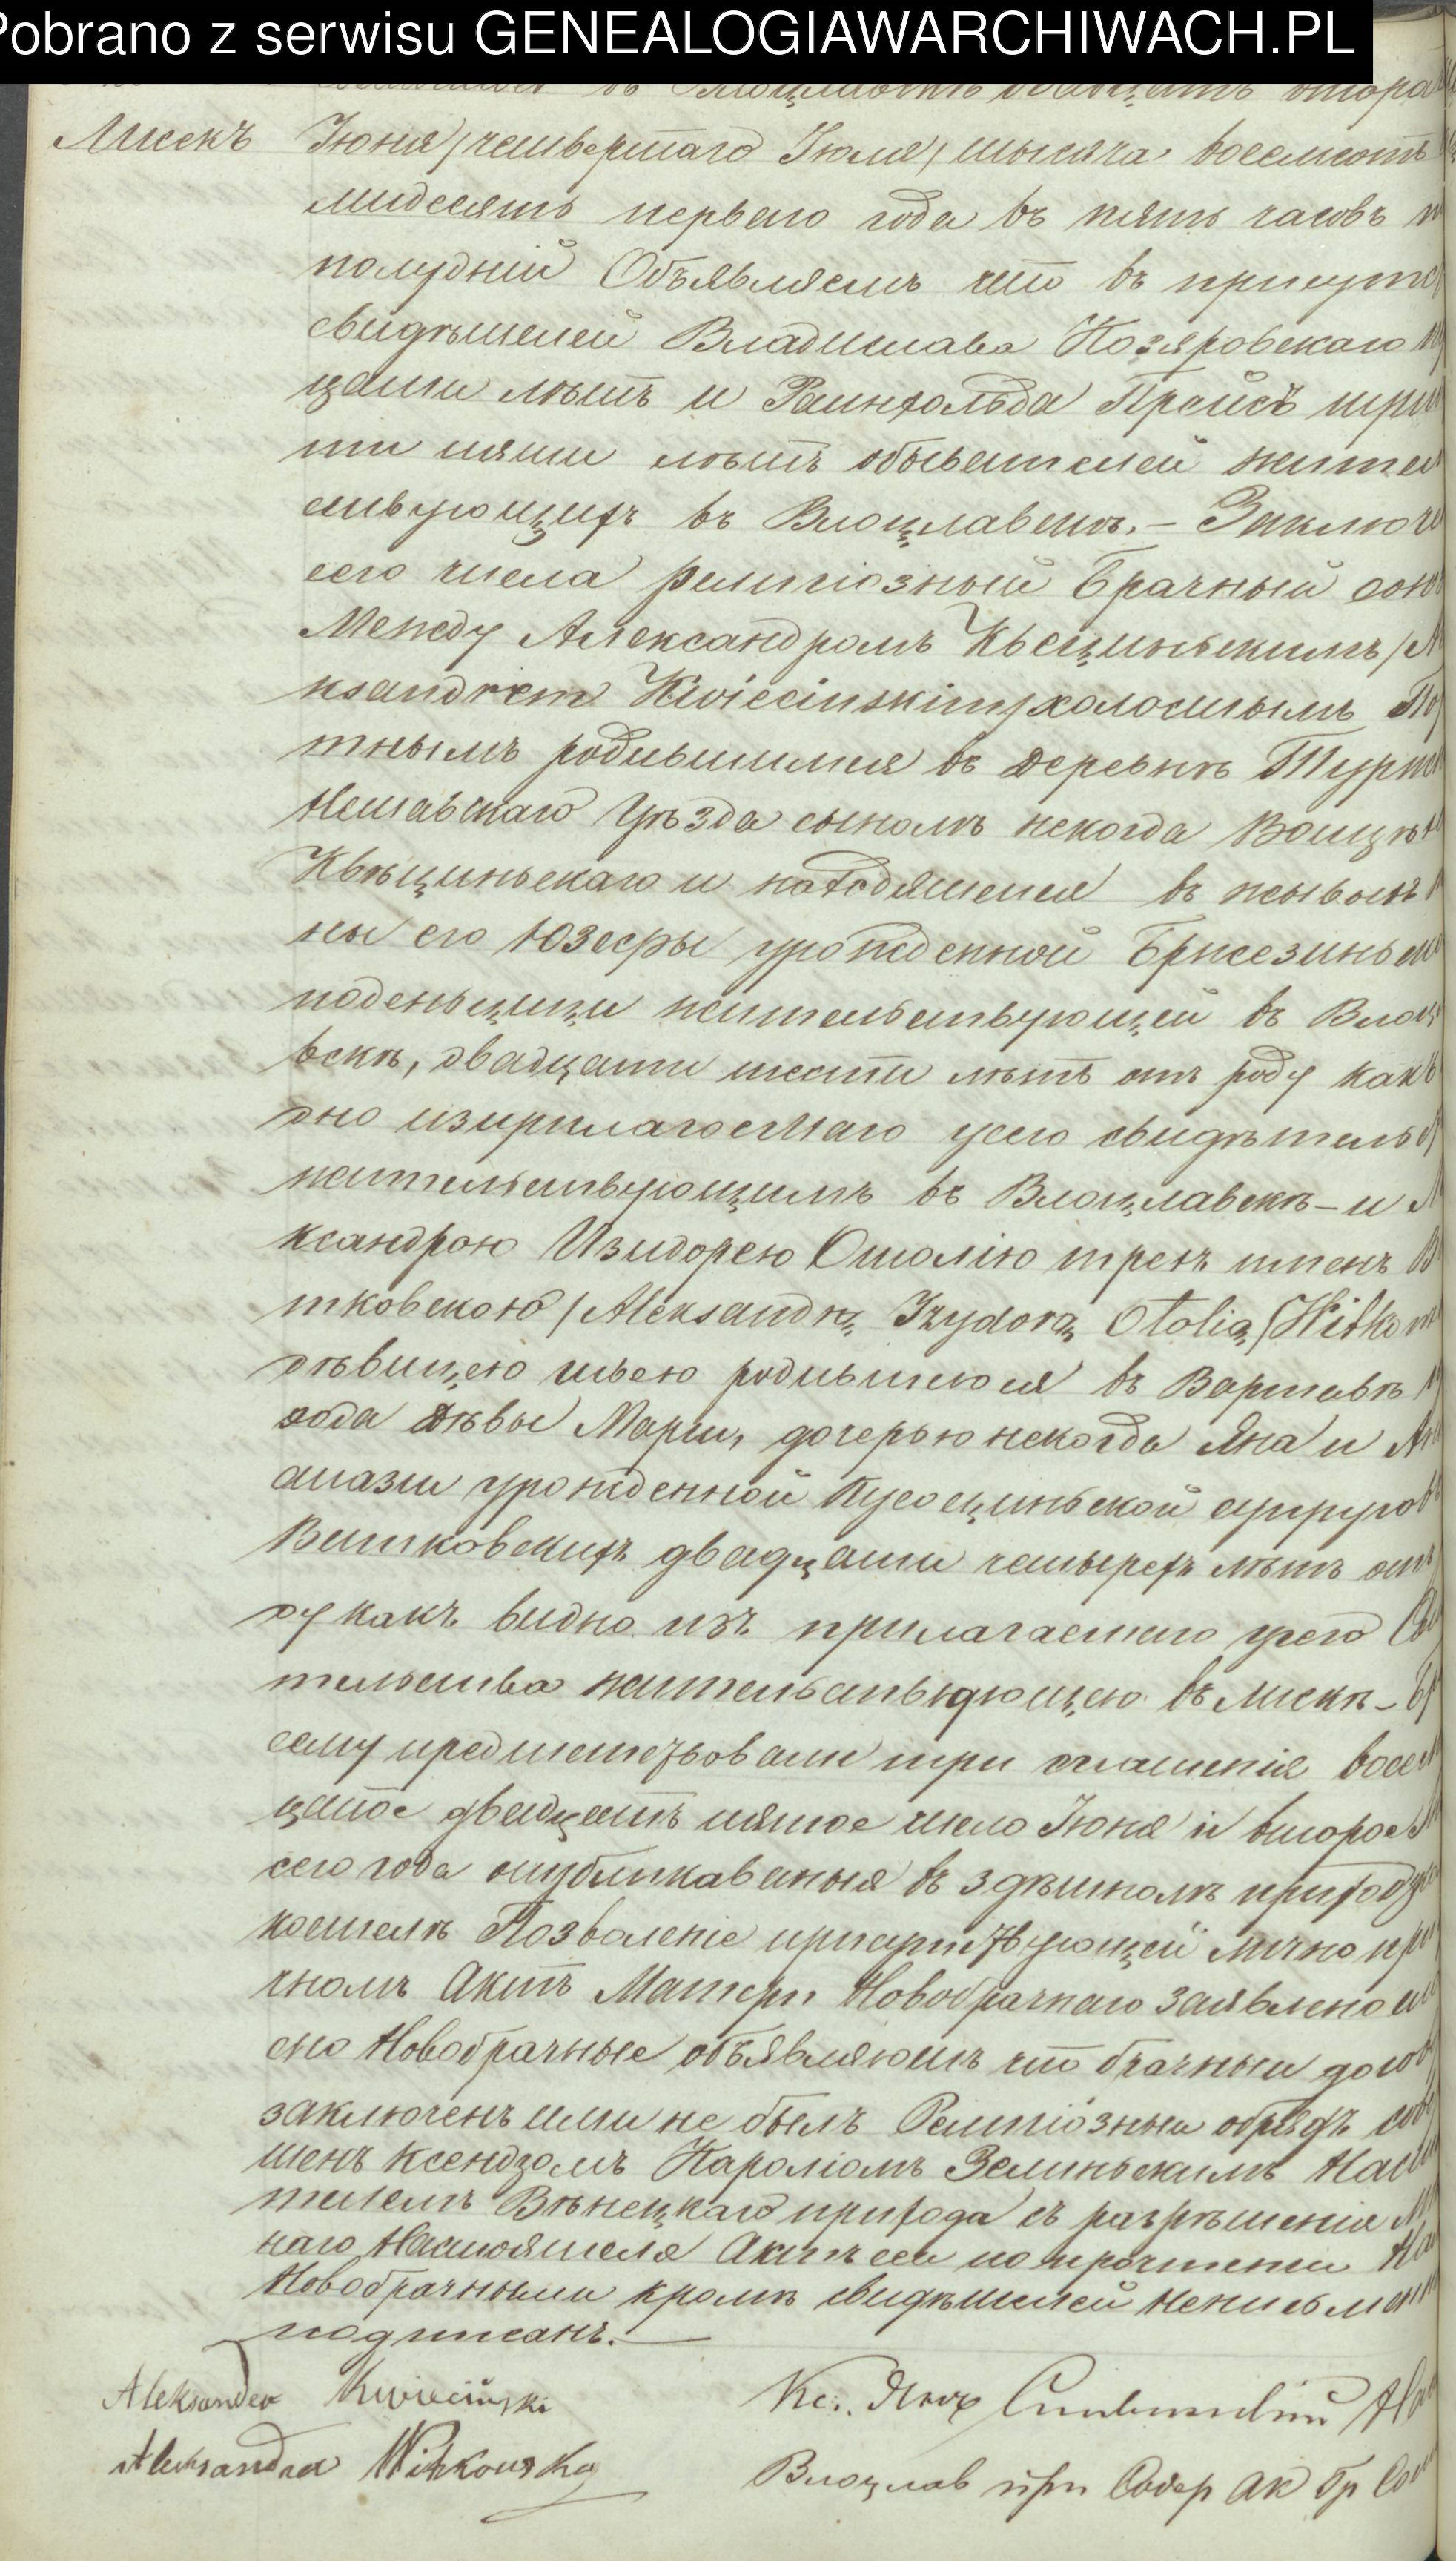 Pobrano z serwisu GENEALOGIAWARCHIWACH.PL
Лисекъ
Іюня /четвертаго Іюля/ тысяча восемсотъ
мидесятъ перваго года въ пять часовъ п
полудній Объявляемъ что въ присутс
свидѣтелей Владислава Козяровскаго
цати лѣтъ и Раинхольда Прейсъ три
ти пяти лѣтъ обывателей жител
ствующихъ въ Влоцлавскѣ. – Заключе
сего числа религіозный Брачный сою
Между Александромъ Квѣциньскимъ /А
ksandrem Kwiecinskim/ холостымъ По
тнымъ родившимся въ деревнѣ
Нешавскаго Уѣзда сыномъ некогда Войцѣ
Квѣциньскаго и находящейся въ живыхъ
ны его Юзефы урожденной Бржезиньс
поденщицы жительствующей въ Влоц
вскѣ, двадцати шести лѣтъ отъ роду какъ
дно изприлагаемаго усего свидѣтельс
жительствующимъ въ Влоцлавскѣ – и А
ксандрою Изидорею Отолію трехъ именъ В
тковскою /Aleksandrą Izydorą Otolią Witkow
дѣвицею родившеюся въ Варшавѣ
хода Дѣвы Маріи, дочерью некогда Яна и
стазіи урожденной супругов
Витковскихъ двадцати четырехъ лѣтъ отъ
ду какъ видно изъ прилагаемаго усего Св
тельства жительствующею въ Лискѣ – Бр
сему предшествовали три оглашенія восем
цатое двадцать пятое число Іюня и второе
сего года опубликаваныя въ здѣшномъ приход
костелѣ Позволеніе присутствующей лично при
чномъ Актѣ Матери Новобрачнаго заявлено
сно Новобрачные объявляютъ что брачный догов
заключенъ ими не былъ Религіозный обрядъ сов
шенъ Ксендзомъ Кароліомъ Зелиньскимъ Наст
телемъ Вѣнецкаго прихода съ разрѣшенія М
наго Настоятеля Актъ сей по прочтеніи
Новобрачными кромѣ свидѣтелей
подписанъ. —
Aleksander Kwieciński
Кс. На
Aleksandra Witkowska
Влоцлав при Содер Ак Гр Сос